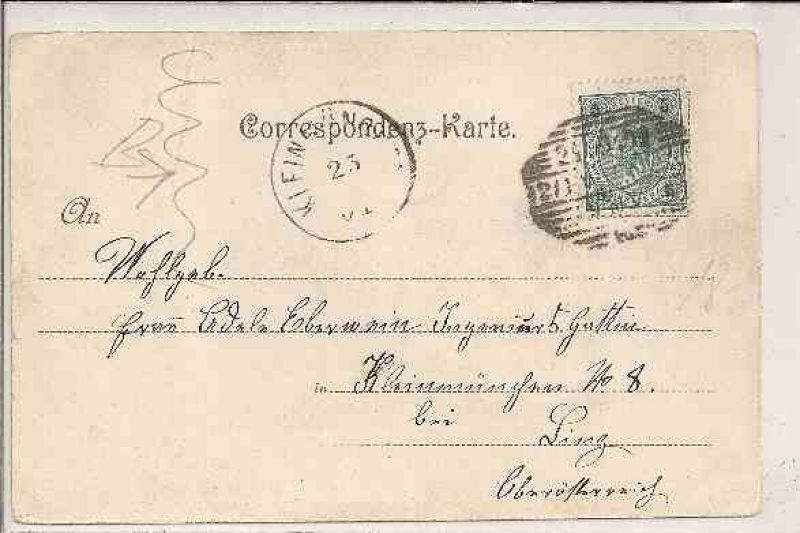 Correspondenz-Karte.
23
An
Wohlgeb.
Frau Adele Eberwein Ingenieurs Gattin
in Kleinmünchen No 8.
bei Linz
Oberösterreich